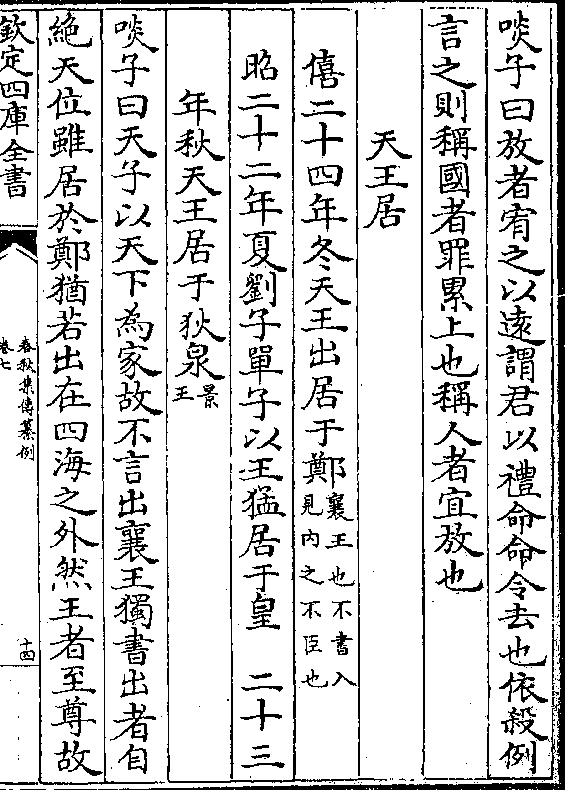 啖子曰放者宥之以遠謂君以禮命命令去也依殺例
言之則稱國者罪累上也稱人者宜放也
天王居
僖二十四年冬天王出居于鄭襄王也不書入見内之不臣也
昭二十二年夏劉子單子以王猛居于皇 二十三
年秋天王居于狄泉景王
啖子曰天子以天下為家故不言出襄王獨書出者自
絶天位雖居於鄭猶若出在四海之外然王者至尊故
欽定四庫全書
春秋集傳纂例
卷七
十四